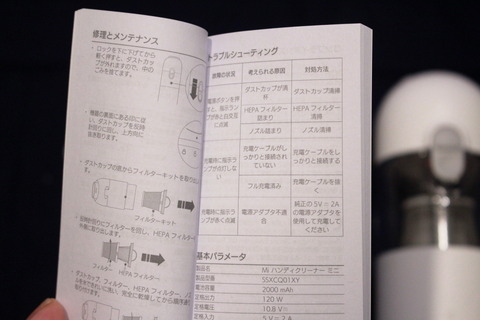 修理とメンテナンス
・ロックを下に下げてから
軽く押すと、ダストカッ
プが外れますので、中の
ごみを捨てます。
・機器の裏面にある印に従
い、ダストカップを反時
計回りに回し、上方向に
抜き取ります。
・ダストカップの底からフィルターキットを取り出
フィルターキット
・反時計回りにフィルターを回し、HEPAフィルター
外側に取り出します。
フィルター HEPAフィルター
・ダストカップ、フィルター、HEPAフィルター
トラブルシューティング
故障の状況 考えられる原因 対処方法
電源ボタンを押
すと、指示ラン
プが赤と白交互
に点滅
ダストカップが満杯 ダストカップ清掃
HEPAフィルター詰まり HEPAフィルター清掃
ノズル詰まり ノズル清掃
充電時に指示ラ
ンプが点灯しな
い
充電ケーブルがしっかりと接続されていない 充電ケーブルをしっかりと接続する
フル充電済み 充電ケーブルを抜く
充電時に指示ラ
ンプが長く点滅
電源アダプタ不適合 純正の5V⎓2Aの電源アダプタを使用して充電してください
基本パラメータ
製品名 Mi ハンディクリーナー ミニ
製品型番 SSXCQ01XY
電池容量 2000 mAh
定格出力 120 W
定格電圧 10.8 V⎓
定格入力 5 V⎓2 A